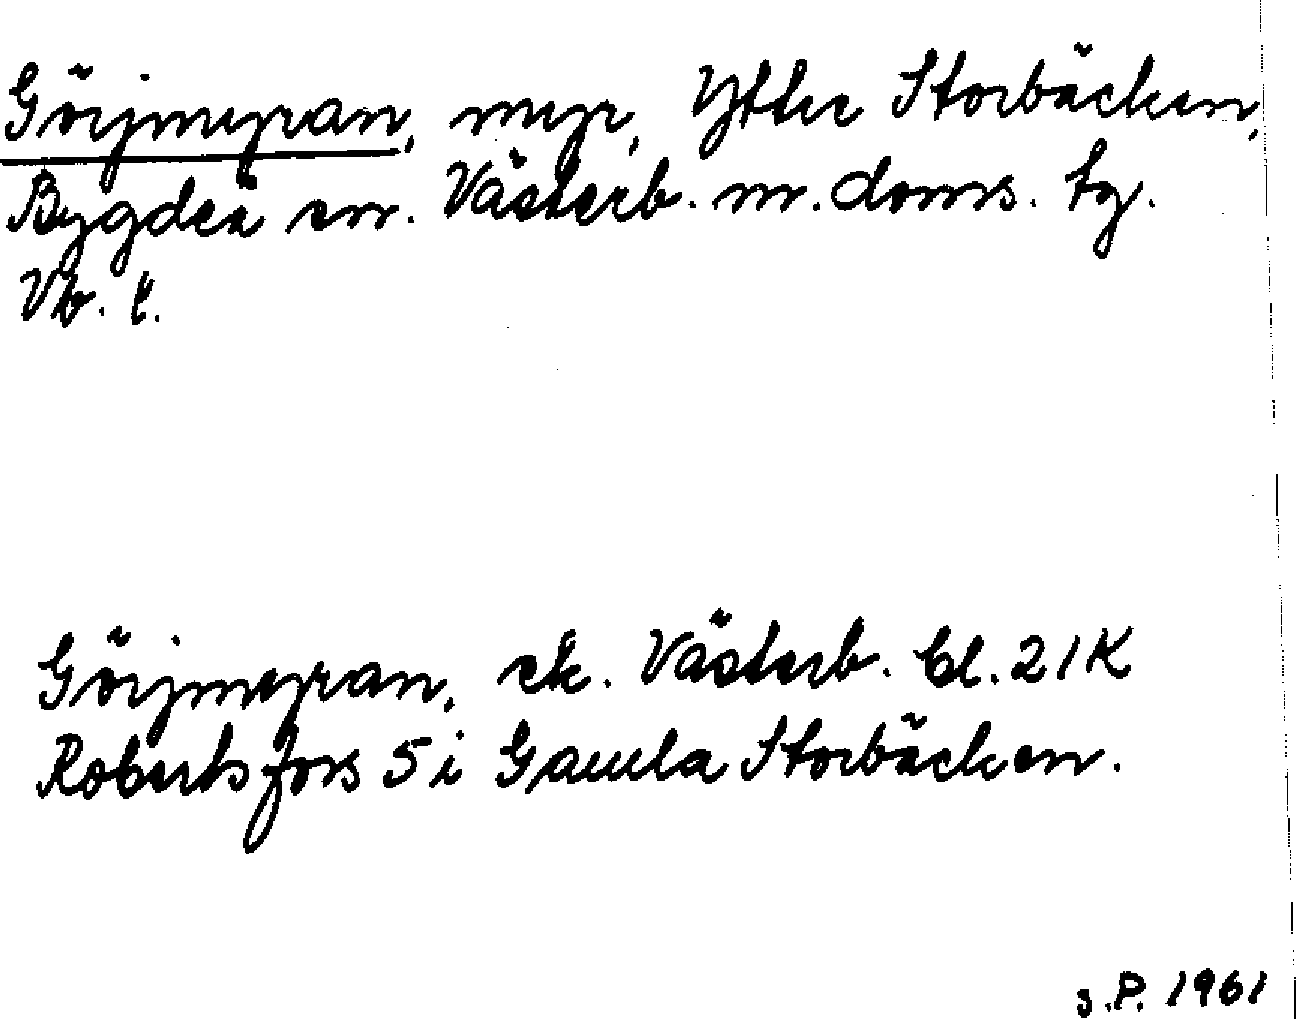 Görjmyran, myr, Ytter Storbäcken,
Bygdeå sn. Västerb. n. doms. tg.
Vb. l.
Görjmyran, ek. Västerb. bl. 21K
Robertsfors 5 i Gamla Storbäcken.
s.P. 1961